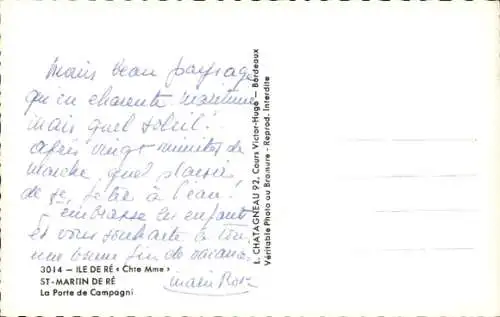 Mais beau paysage
qu'en charente maritime
mais quel soleil!
après vingt minutes de
marche, quel plaisir,
de se jeter à l'eau.
J'embrasse les enfants
et vous souhaite à tous
une bonne fin de vacances
3014 — ILE DE RÉ « Chte Mme »
ST-MARTIN DE RÉ
La Porte de Campagni
L. CHATAGNEAU 92, Cours Victor-Hugo — Bordeaux
Véritable Photo au Bromure - Reprod. Interdite